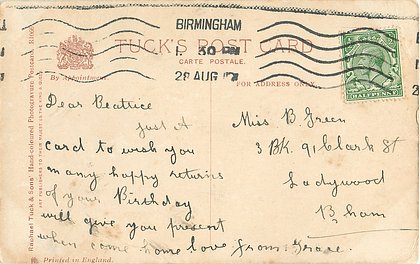 BIRMINGHAM
1. 30 PM
28 AUG
TUCK'S POST CARD
CARTE POSTALE.
By Appointment.
FOR ADDRESS ONLY.
HALFPENNY
Raphael Tuck & Sons' Hand-coloured Photogravure
Dear Beatrice
just A
card to wish you
many happy returns
of your Birthday
will give you present
when come home love from Grace.
Miss B. Green
3 BK. 91 Clark St
Ladywood
B'ham
Printed in England.